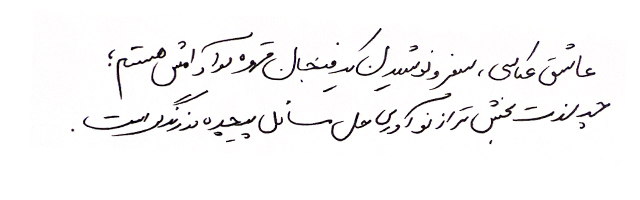 عاشق عکاسی، سفر و نوشیدن یک فنجان قهوه با آرامش هستم؛
چه لذت بخش تر از نوآوری حل مسائل پیچیده در زندگی است.